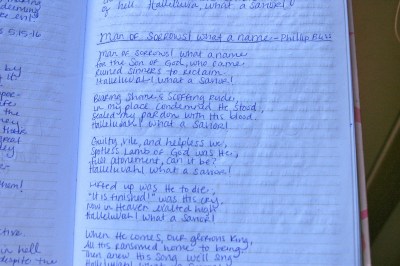 s 5:15-16
by
it
the
great
them!
in hell
despite the
of hell. Hallelujah, what a Savior!
Man of Sorrows! What a name - Phillip Bliss
Man of sorrows! what a name
for the Son of God, who came
Ruined sinners to reclaim
Hallelujah! what a Savior!
Bearing shame & scoffing rude,
in my place condemned He stood,
sealed my pardon with His blood.
Hallelujah! what a Savior!
Guilty, vile, and helpless we,
Spotless Lamb of God was He,
full atonement, can it be?
Hallelujah! what a Savior!
Lifted up was He to die,
"It is finished!" was His cry,
now in Heaven exalted high
Hallelujah! what a Savior!
When He comes, our glorious King,
All His ransomed home to bring
Then anew His song we'll sing
Hallelujah! what a Savior!